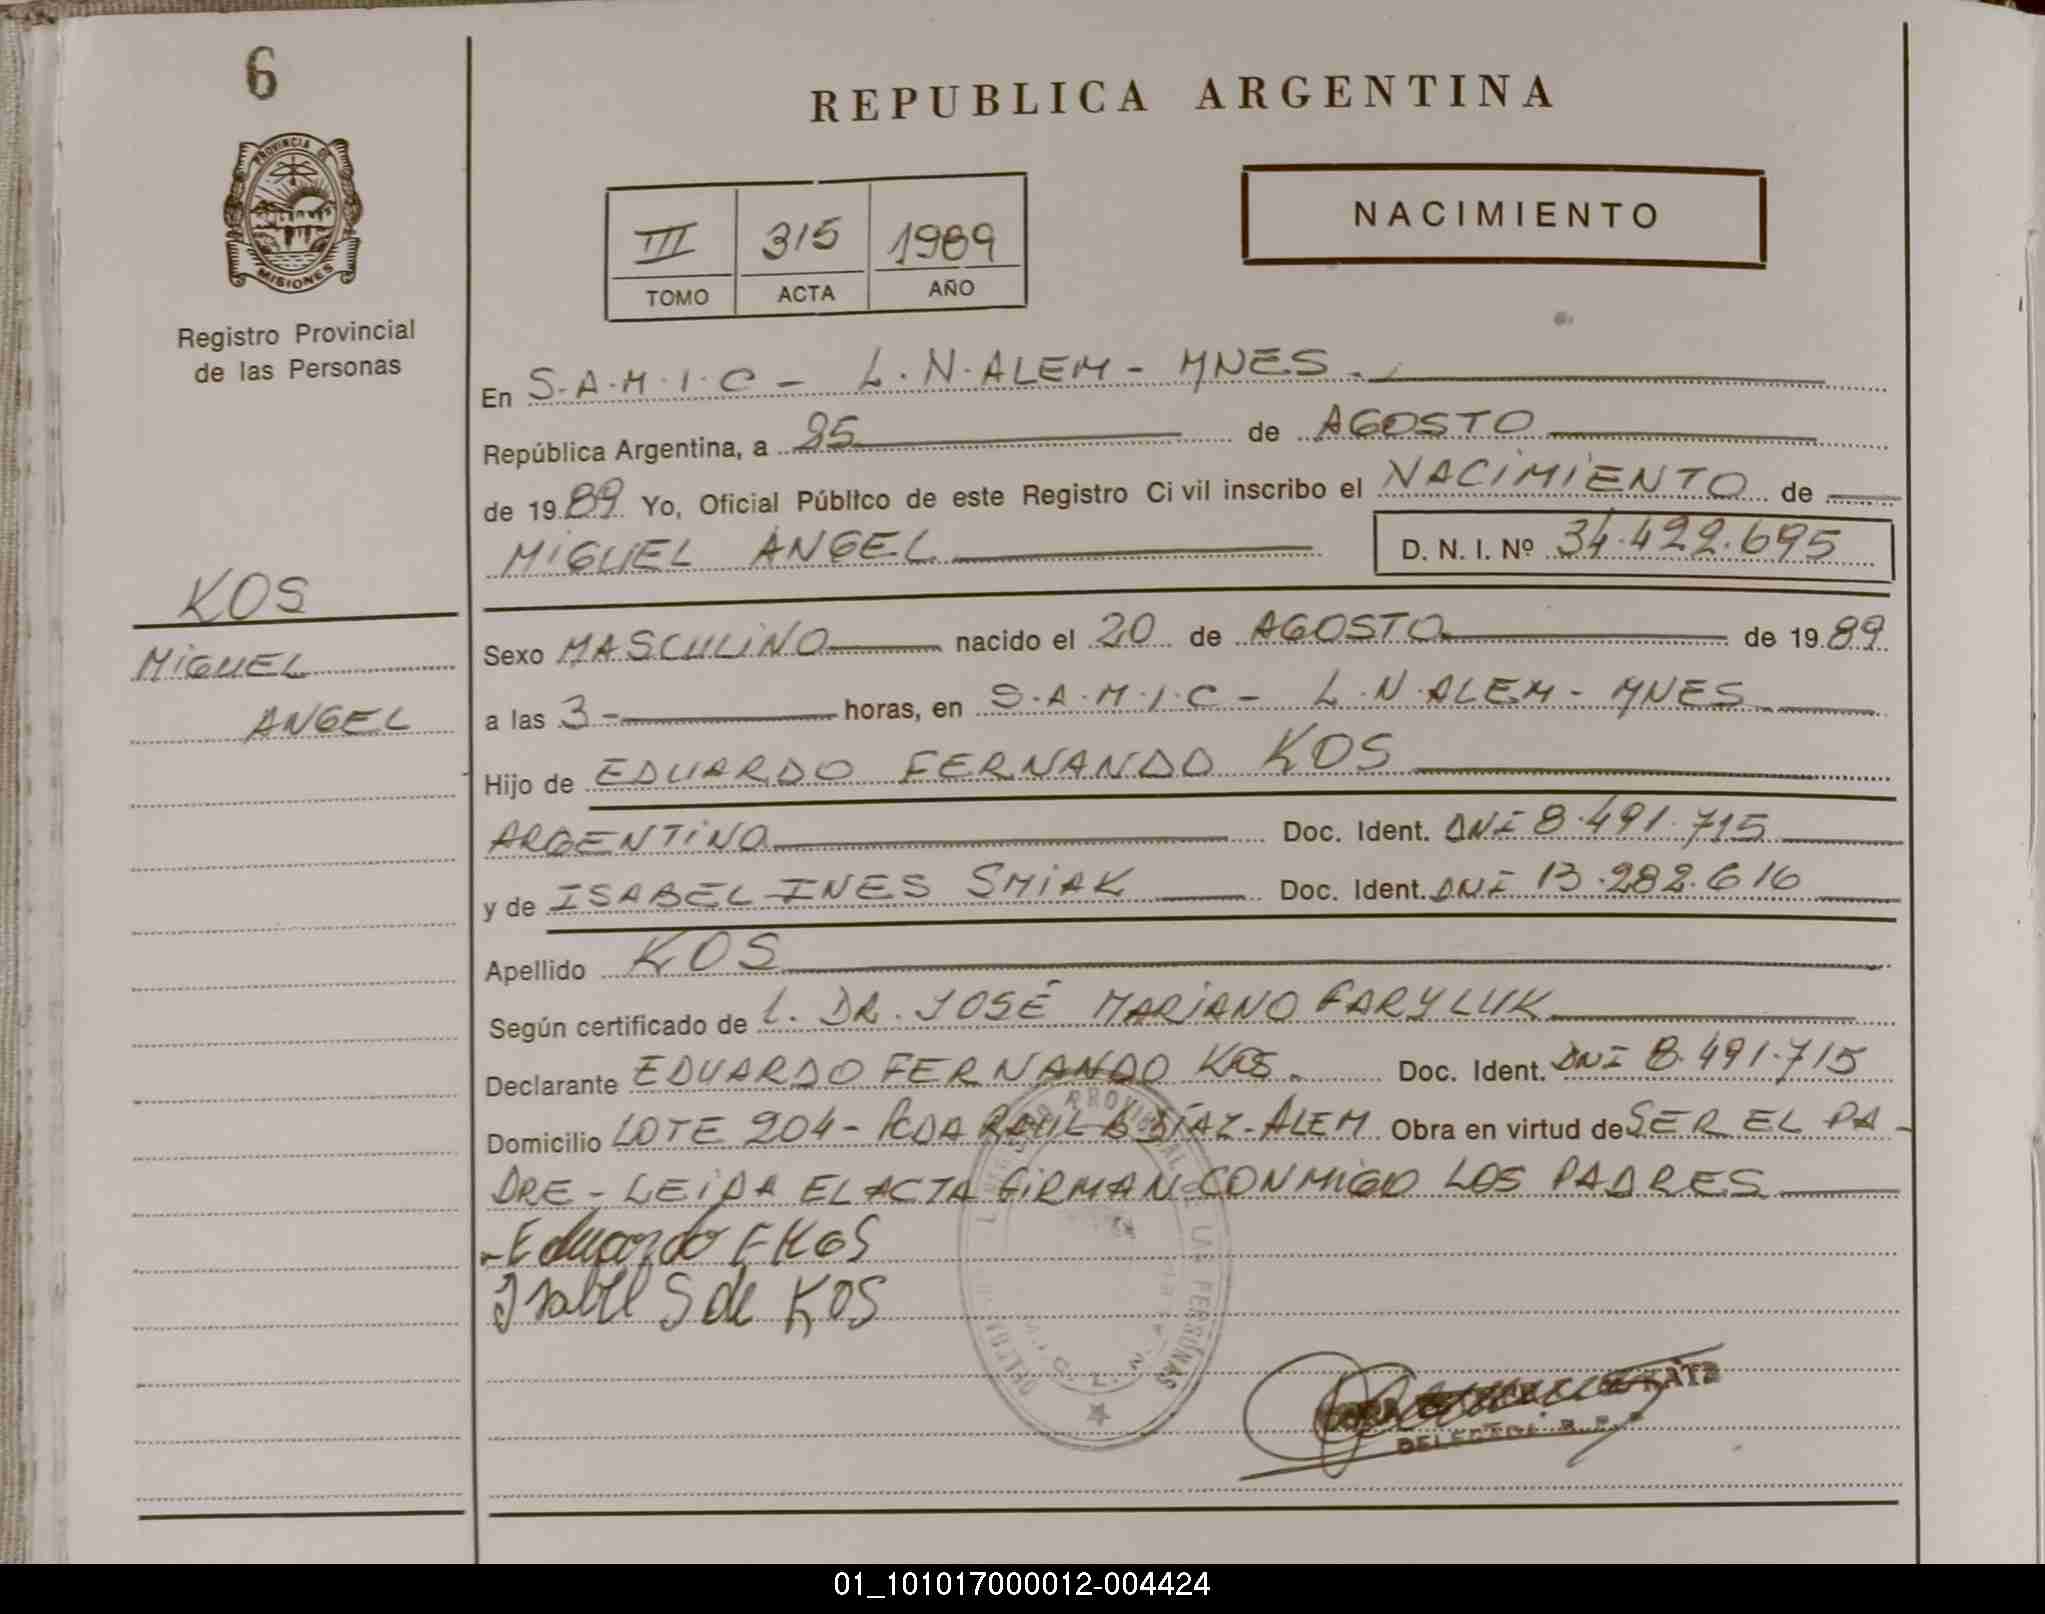 6
PROVINCIA DE
MISIONES
Registro Provincial
de las Personas
KOS
MIGUEL
ANGEL
REPUBLICA ARGENTINA
III 315 1989
TOMO ACTA AÑO
NACIMIENTO
En S.A.M.I.C - L.N.ALEM - MNES.
República Argentina, a 25 de AGOSTO
de 1989 Yo, Oficial Público de este Registro Civil inscribo el NACIMIENTO de
MIGUEL ANGEL D. N. I. Nº 34.422.695
Sexo MASCULINO nacido el 20 de AGOSTO de 1989
a las 3 - horas, en S.A.M.I.C - L.N.ALEM - MNES
Hijo de EDUARDO FERNANDO KOS
ARGENTINO Doc. Ident. DNI 8.491.715
y de ISABEL INES SMIAK Doc. Ident. DNI 13.282.616
Apellido KOS
Según certificado de L. DR. JOSÉ MARIANO FARYLUK
Declarante EDUARDO FERNANDO KOS. Doc. Ident. DNI 8.491.715
Domicilio LOTE 204 - PCDA RAUL B DÍAZ - ALEM Obra en virtud de SER EL PA-
DRE - LEIDA EL ACTA FIRMAN CONMIGO LOS PADRES
Eduardo F KOS
Isabel S de KOS
01_101017000012-004424